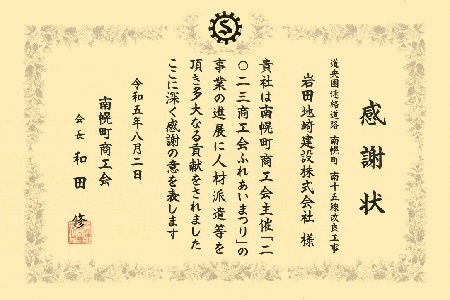 感謝状
道央圏連絡道路 南幌町 南十五線改良工事
岩田地崎建設株式会社 様
貴社は南幌町商工会主催「二
〇二三商工会ふれあいまつり」の
事業の進展に人材派遣等を
頂き多大なる貢献をされました
ここに深く感謝の意を表します
令和五年八月二日
南幌町商工会
会長 和田 修